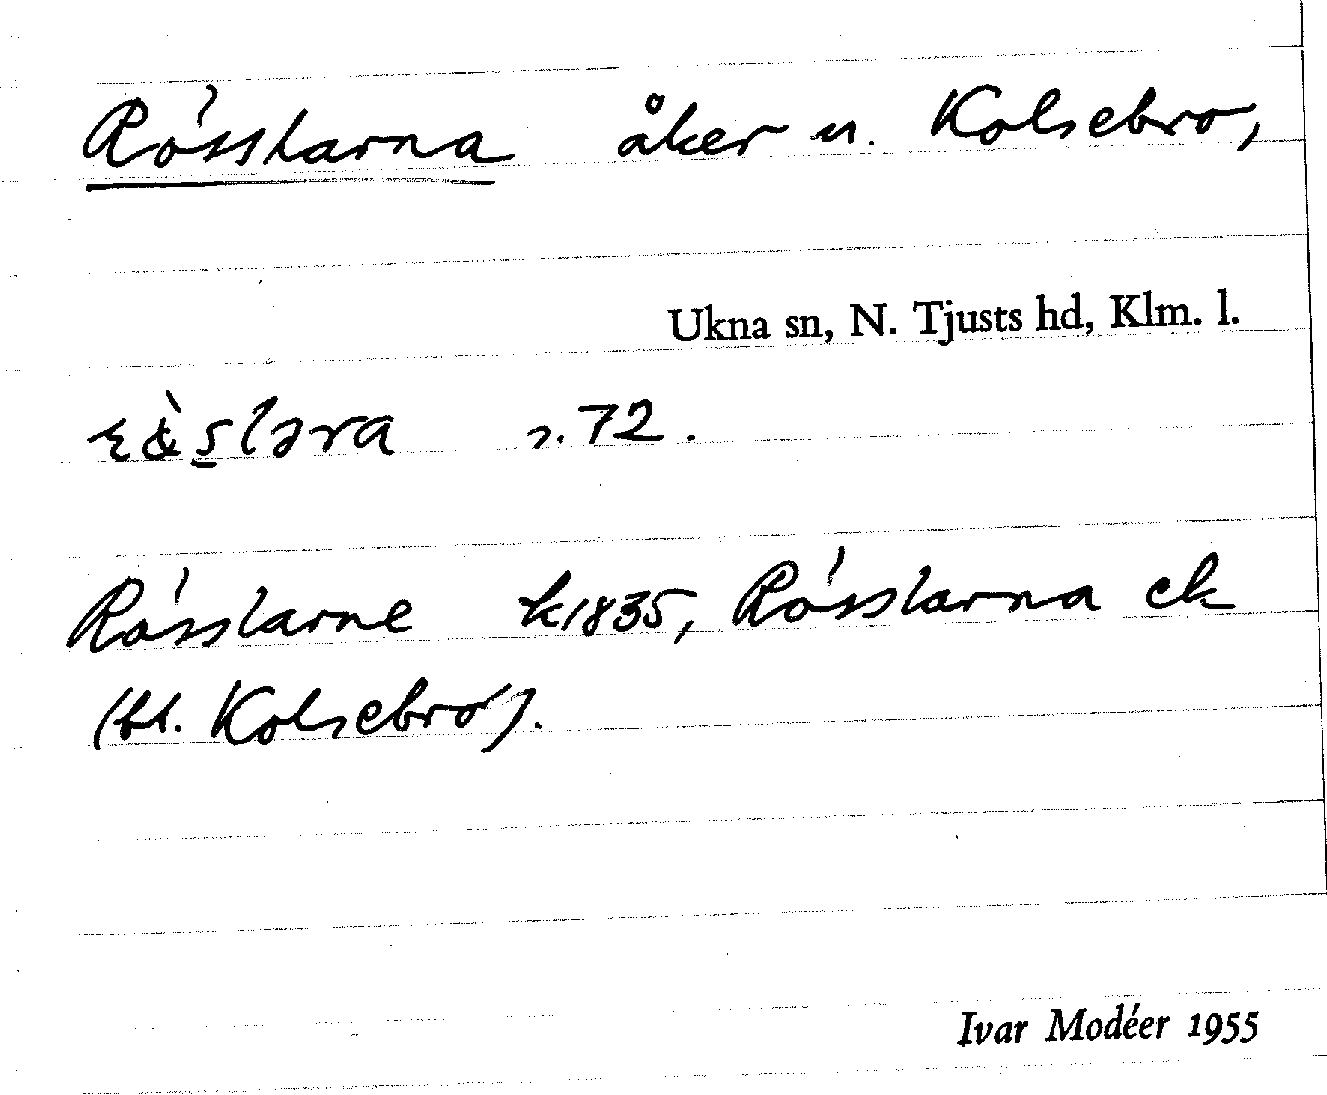 Rösslarna åker u. Kolsebro,
Ukna sn, N. Tjusts hd, Klm. l.
s. 72.
Rösslarne k1835, Rösslarna ek
(bl. Kolsebro).
Ivar Modéer 1955